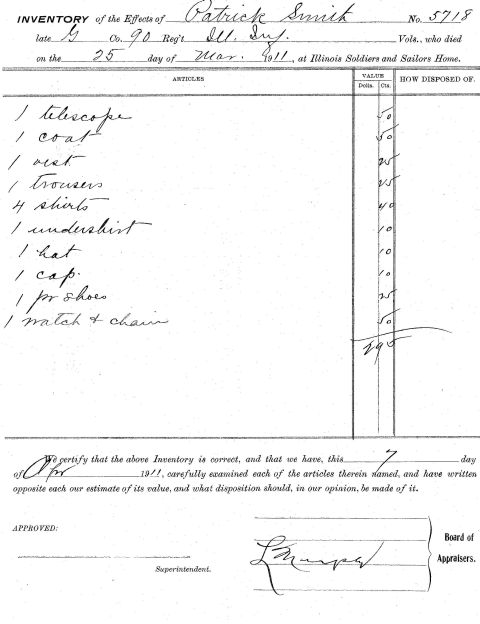 INVENTORY of the Effects of Patrick Smith No. 5718
late G Co. 90 Reg't Ill. Inf. Vols., who died
on the 25 day of Mar. 1911, at Illinois Soldiers and Sailors Home.
ARTICLES VALUE HOW DISPOSED OF.
Dolls. Cts.
1 telescope 50
1 coat 50
1 vest 25
1 trousers 25
4 shirts 40
1 undershirt 10
1 hat 10
1 cap. 10
1 pr shoes 25
1 watch & chain 50
2 95
We certify that the above Inventory is correct, and that we have, this 7 day
of Apr 1911, carefully examined each of the articles therein named, and have written
opposite each our estimate of its value, and what disposition should, in our opinion, be made of it.
APPROVED:
Superintendent.
L Murphy
Board of
Appraisers.